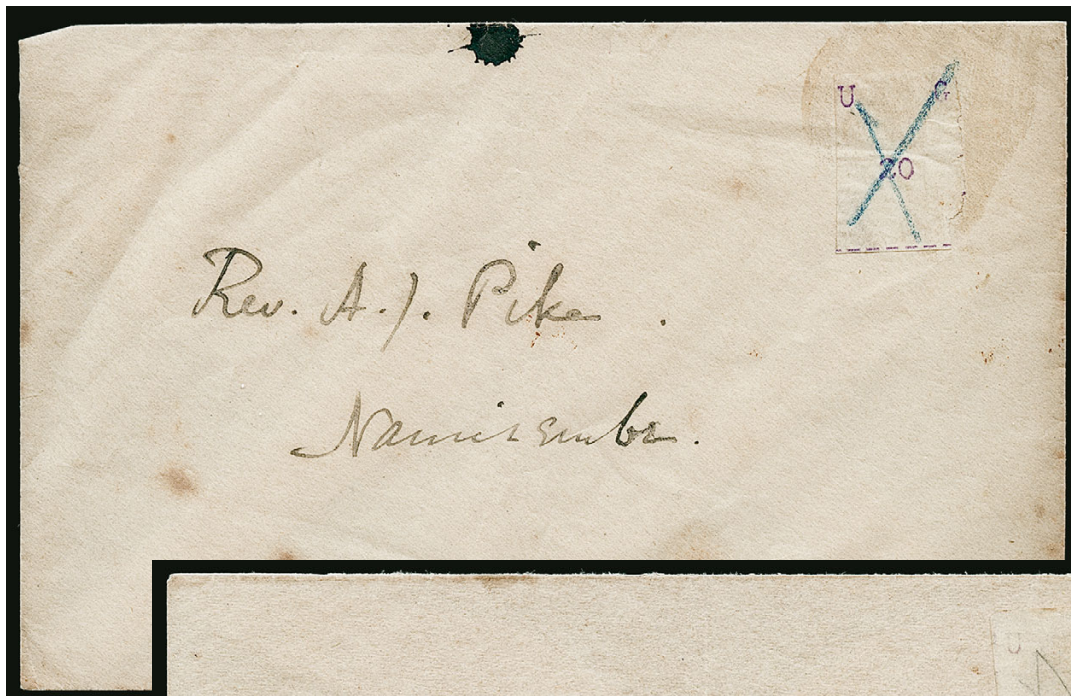 U G
20
Rev. A. J. Pike.
Namirembe.
U